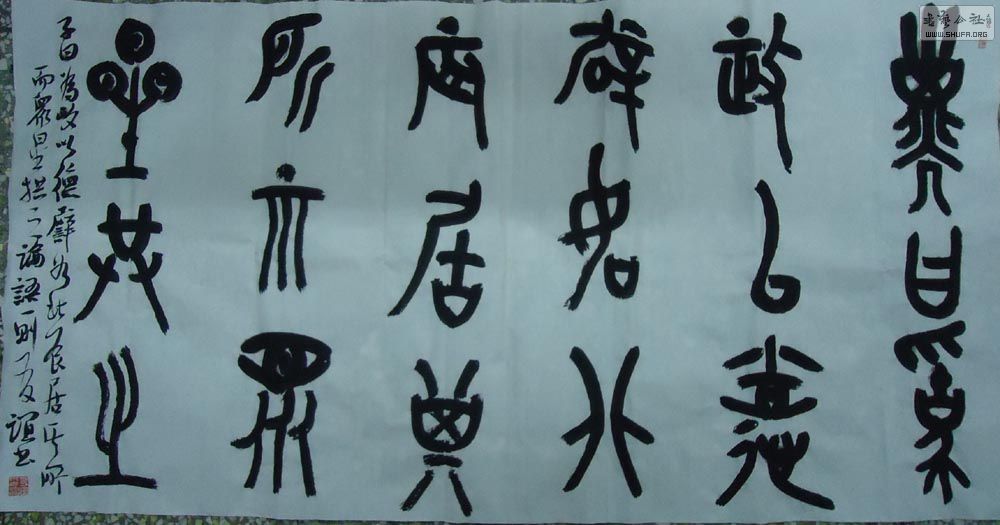 子曰為
政以德
辟如北
辰居其
所而眾
星共之
子曰為政以德譬如北辰居其所
而眾星拱之論語一則友誼書
書藝公社
WWW.SHUFA.ORG